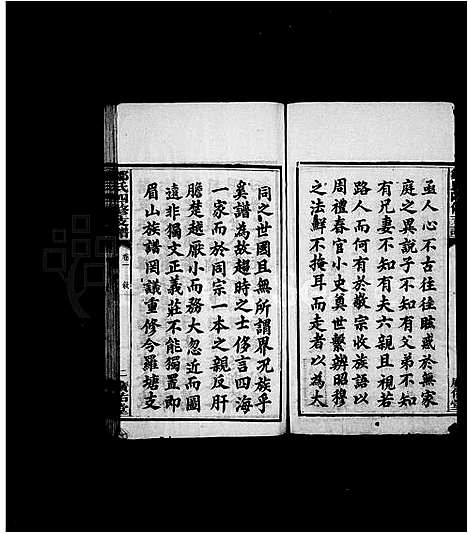 亟人心不古往往眩惑於無家
庭之異說子不知有父弟不知
有兄妻不知有夫六親且視若
路人而何有於敬宗收族語以
周禮春官小史奠世繫辨昭穆
之法鮮不掩耳而走者以為大
同之世國且無所謂界況族乎
奚譜為故趨時之士侈言四海
一家而於同宗一本之親反肝
膽楚越厥小而務大忽近而圖
遠非獨文正義莊不能獨置即
眉山族譜罔議重修今羅塘支
鄒氏四修支譜
卷一
二